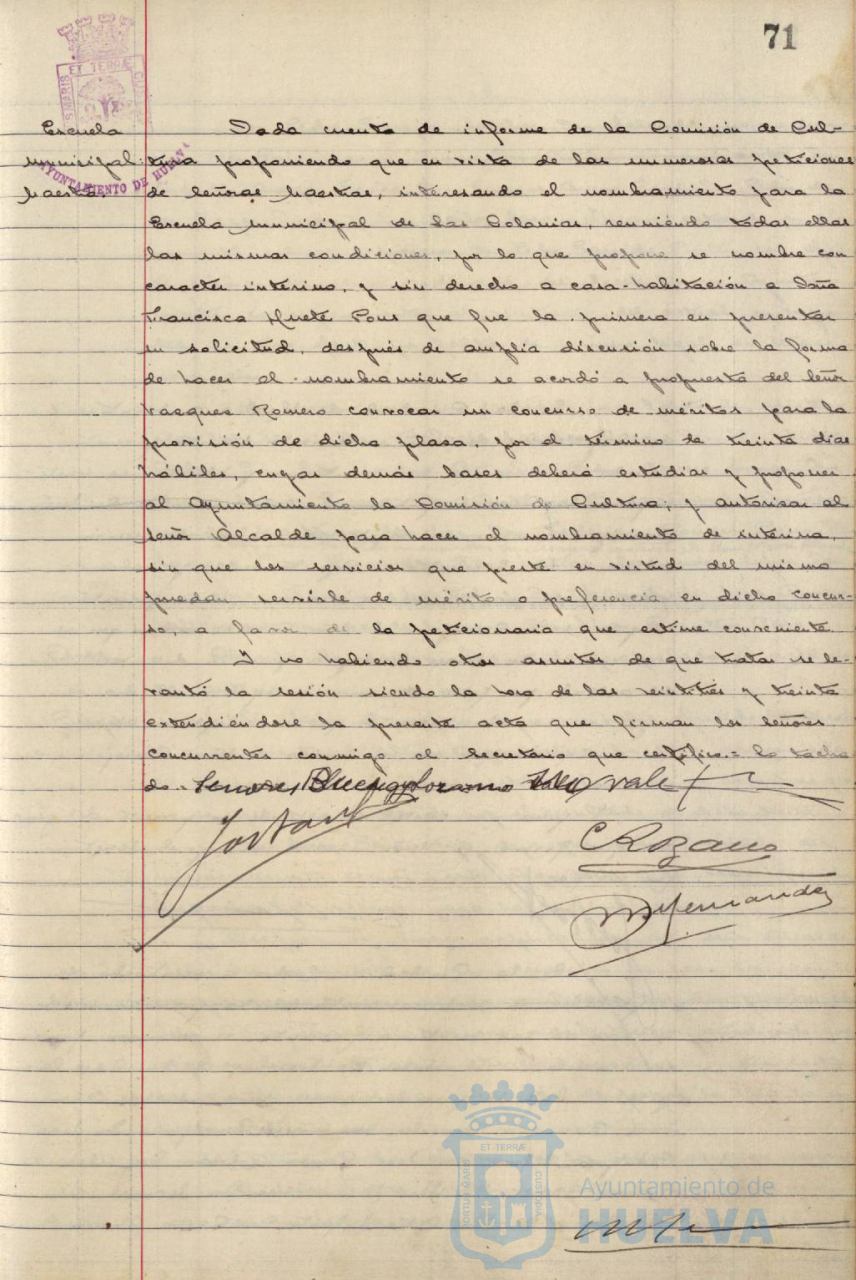 71
ET TERRÆ
AYUNTAMIENTO DE HUELVA
Escuela
municipal:
Maestra.
Dada cuenta de informe de la Comisión de Cul-
tura proponiendo que en vista de las numerosas peticiones
de Señoras Maestras, interesando el nombramiento para la
Escuela municipal de Las Colonias, reuniendo todas ellas
las mismas condiciones, por lo que propone se nombre con
caracter interino, y sin derecho a casa-habitación a Doña
Francisca Huete Pons que fue la primera en presentar
su solicitud, después de amplia discusión sobre la forma
de hacer el nombramiento se acordó a propuesta del Señor
Vazquez Romero convocar un concurso de méritos para la
provisión de dicha plaza, por el término de treinta dias
hábiles, cuyas demás bases deberá estudiar y proponer
al Ayuntamiento la Comisión de Cultura; y autorizar al
Señor Alcalde para hacer el nombramiento de interina,
sin que los servicios que preste en virtud del mismo
puedan servirle de mérito o preferencia en dicho concur-
so, a favor de la peticionaria que estime conveniente.
Y no habiendo otros asuntos de que tratar se le-
vantó la sesión siendo la hora de las veintitrés y treinta
extendiéndose la presente acta que firman los señores
concurrentes conmigo el Secretario que certifico.= lo tacha
do= Señores vale
C Rozano
Fernandez
ET TERRÆ
PORTUS MARIS
CUSTODIA
Ayuntamiento de
HUELVA